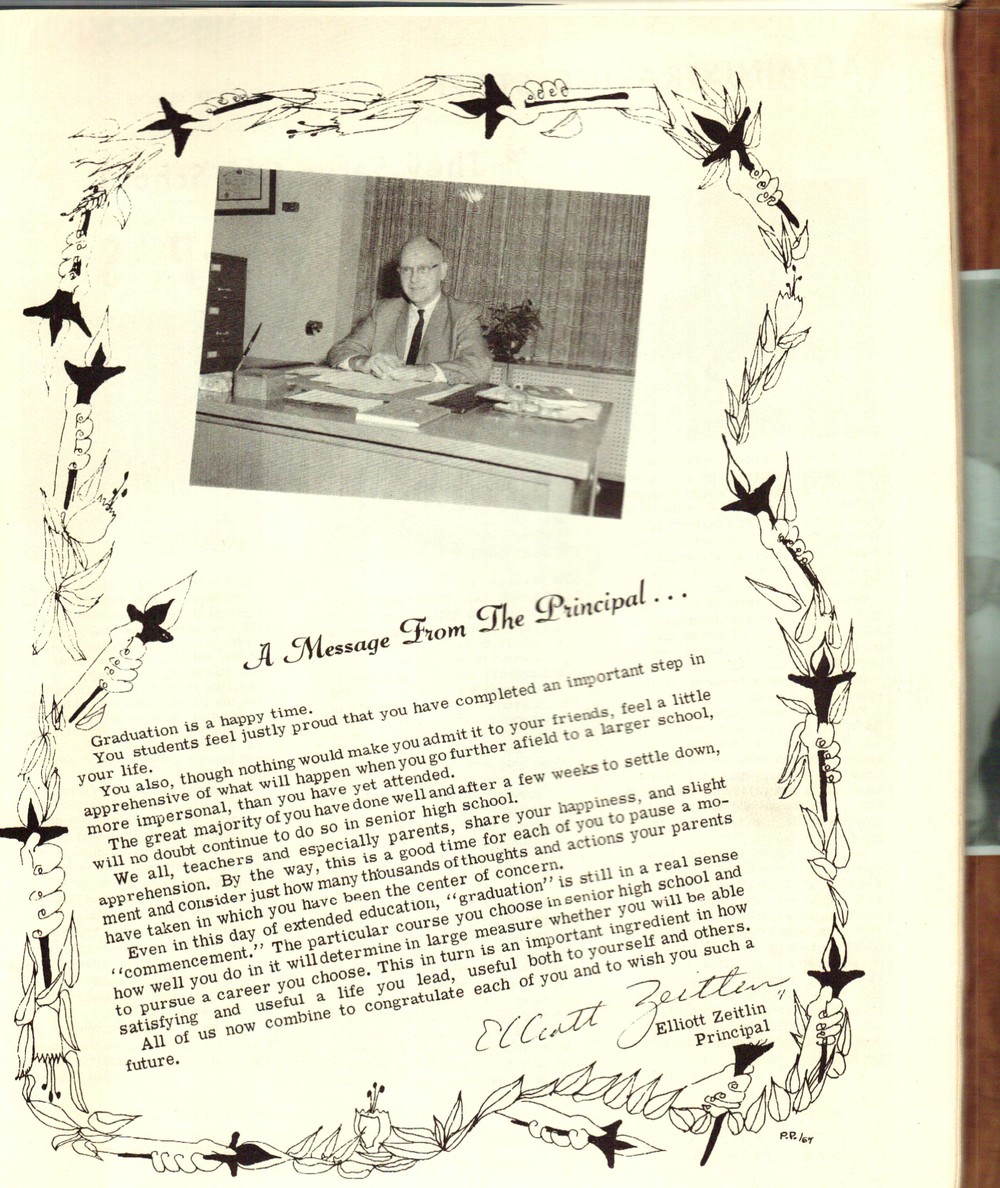 A Message From The Principal . . .
Graduation is a happy time.
You students feel justly proud that you have completed an important step in
your life.
You also, though nothing would make you admit it to your friends, feel a little
apprehensive of what will happen when you go further afield to a larger school,
more impersonal, than you have yet attended.
The great majority of you have done well and after a few weeks to settle down,
will no doubt continue to do so in senior high school.
We all, teachers and especially parents, share your happiness, and slight
apprehension. By the way, this is a good time for each of you to pause a mo-
ment and consider just how many thousands of thoughts and actions your parents
have taken in which you have been the center of concern.
Even in this day of extended education, "graduation" is still in a real sense
"commencement." The particular course you choose in senior high school and
how well you do in it will determine in large measure whether you will be able
to pursue a career you choose. This in turn is an important ingredient in how
satisfying and useful a life you lead, useful both to yourself and others.
All of us now combine to congratulate each of you and to wish you such a
future.
Elliott Zeitlin
Elliott Zeitlin
Principal
P.P./67